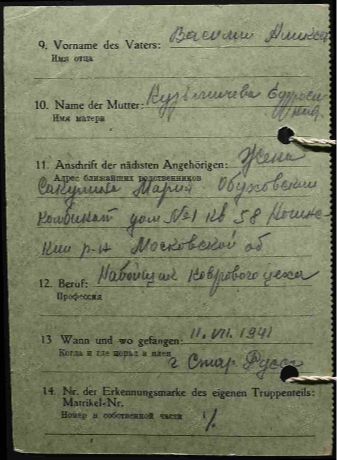 9. Vorname des Vaters: Василий Алексее
Имя отца
10. Name der Mutter: Кузьмичева Ефроси
Имя матери
ния
11. Anschrift der nächsten Angehörigen: Жена
Адрес ближайших родственников
Сакулина Мария Обуховский
Комбинат дом №1 кв 58 Ногинс-
кий р-н Московской об
12. Beruf: Набойщик Коврового цеха
Профессия
13 Wann und wo gefangen: 11. VII. 1941
Когда и где попал в плен
г Стар Русса
14. Nr. der Erkennungsmarke des eigenen Truppenteils:
Matrikel-Nr.
Номер в собственной части